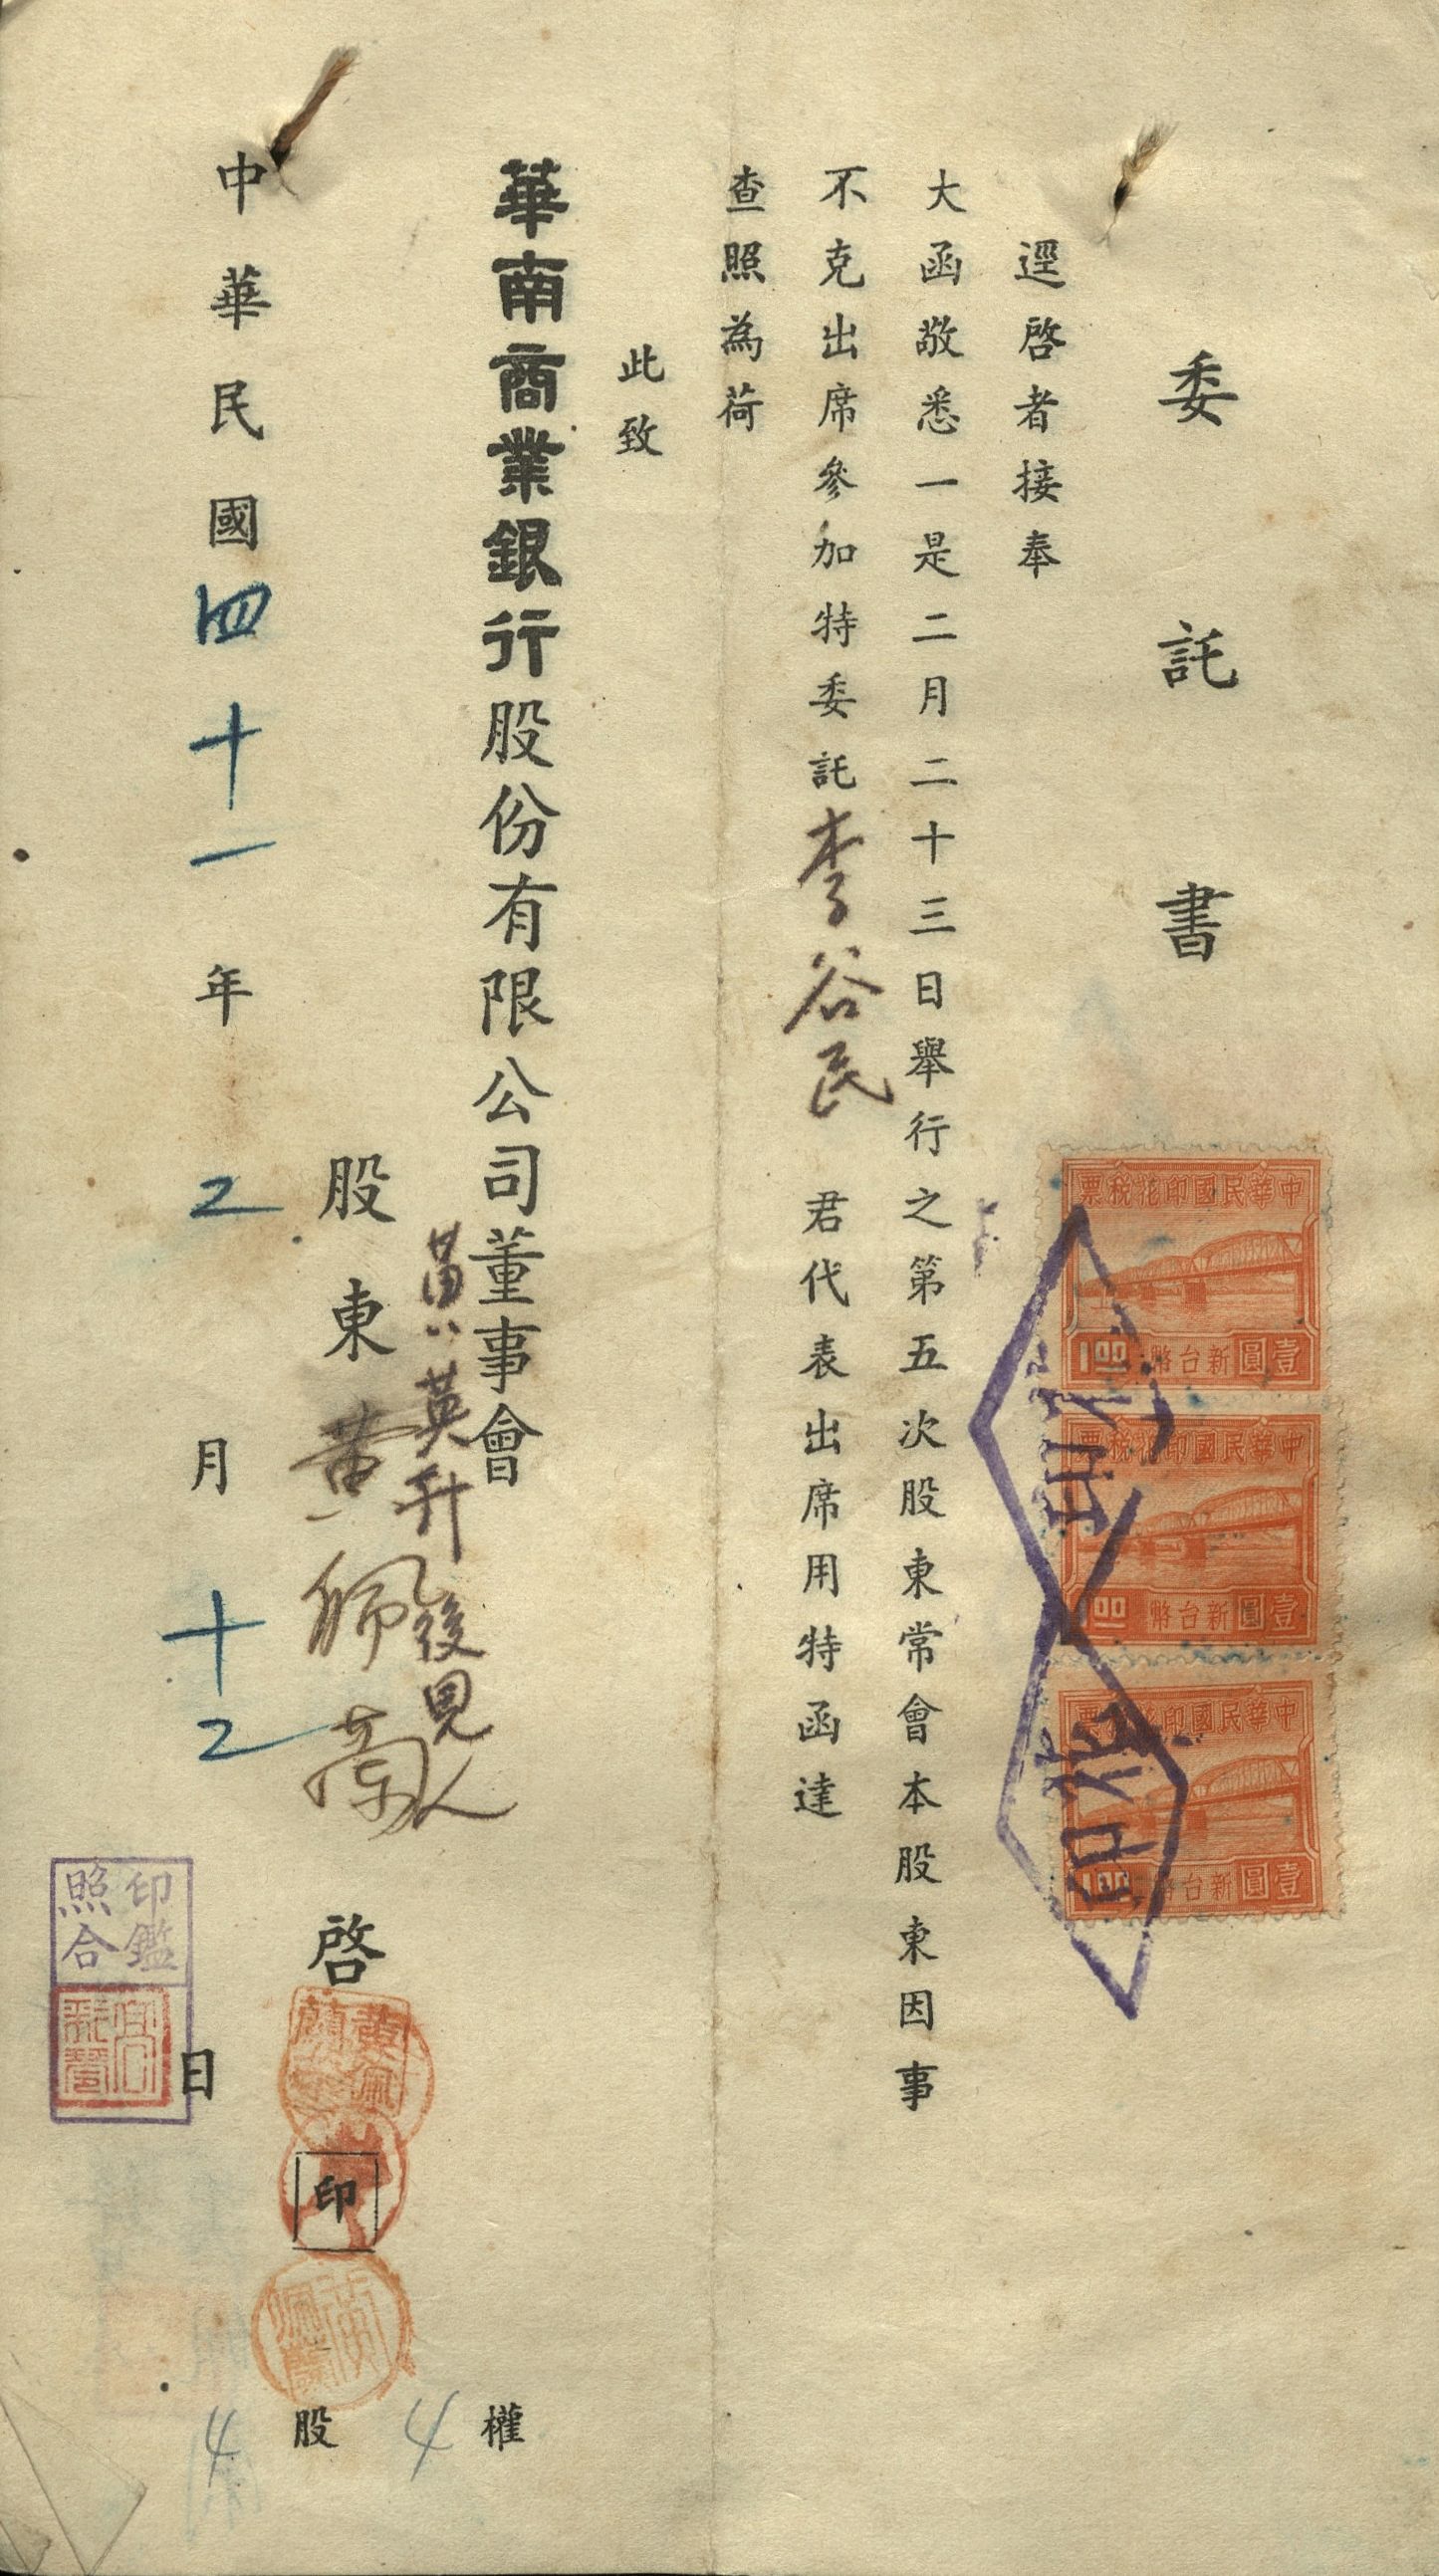 委託書
逕啓者接奉
大函敬悉一是二月二十三日舉行之第五次股東常會本股東因事
不克出席參加特委託李谷民君代表出席用特函達
查照為荷
此致
華南商業銀行股份有限公司董事會
黃英升後見人
股東黃佩蘭啓印
中華民國四十一年2月十2日
4股4權
中華民國印花稅票
壹圓新台幣1.00
中華民國印花稅票
壹圓新台幣1.00
中華民國印花稅票
壹圓新台幣1.00
印鑑
照合